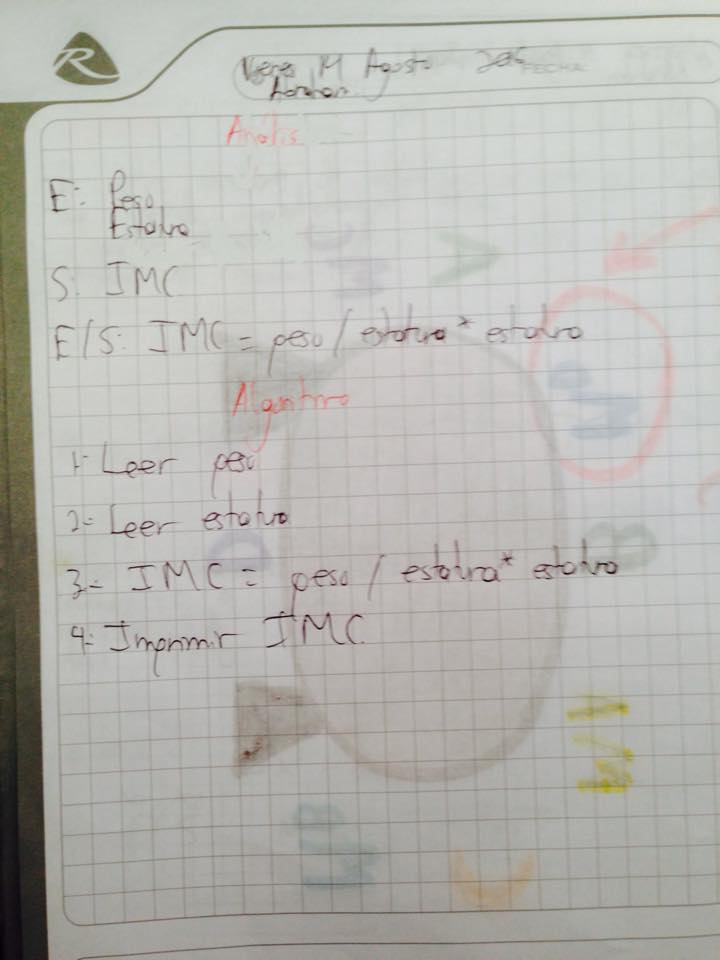 R
Agosto
FECHA
Anális
E: Peso
Estatura
S: IMC
E/S: IMC = peso / estatura * estatura
Algoritmo
1- Leer peso
2- Leer estatura
3- IMC = peso / estatura * estatura
4- Imprimir IMC